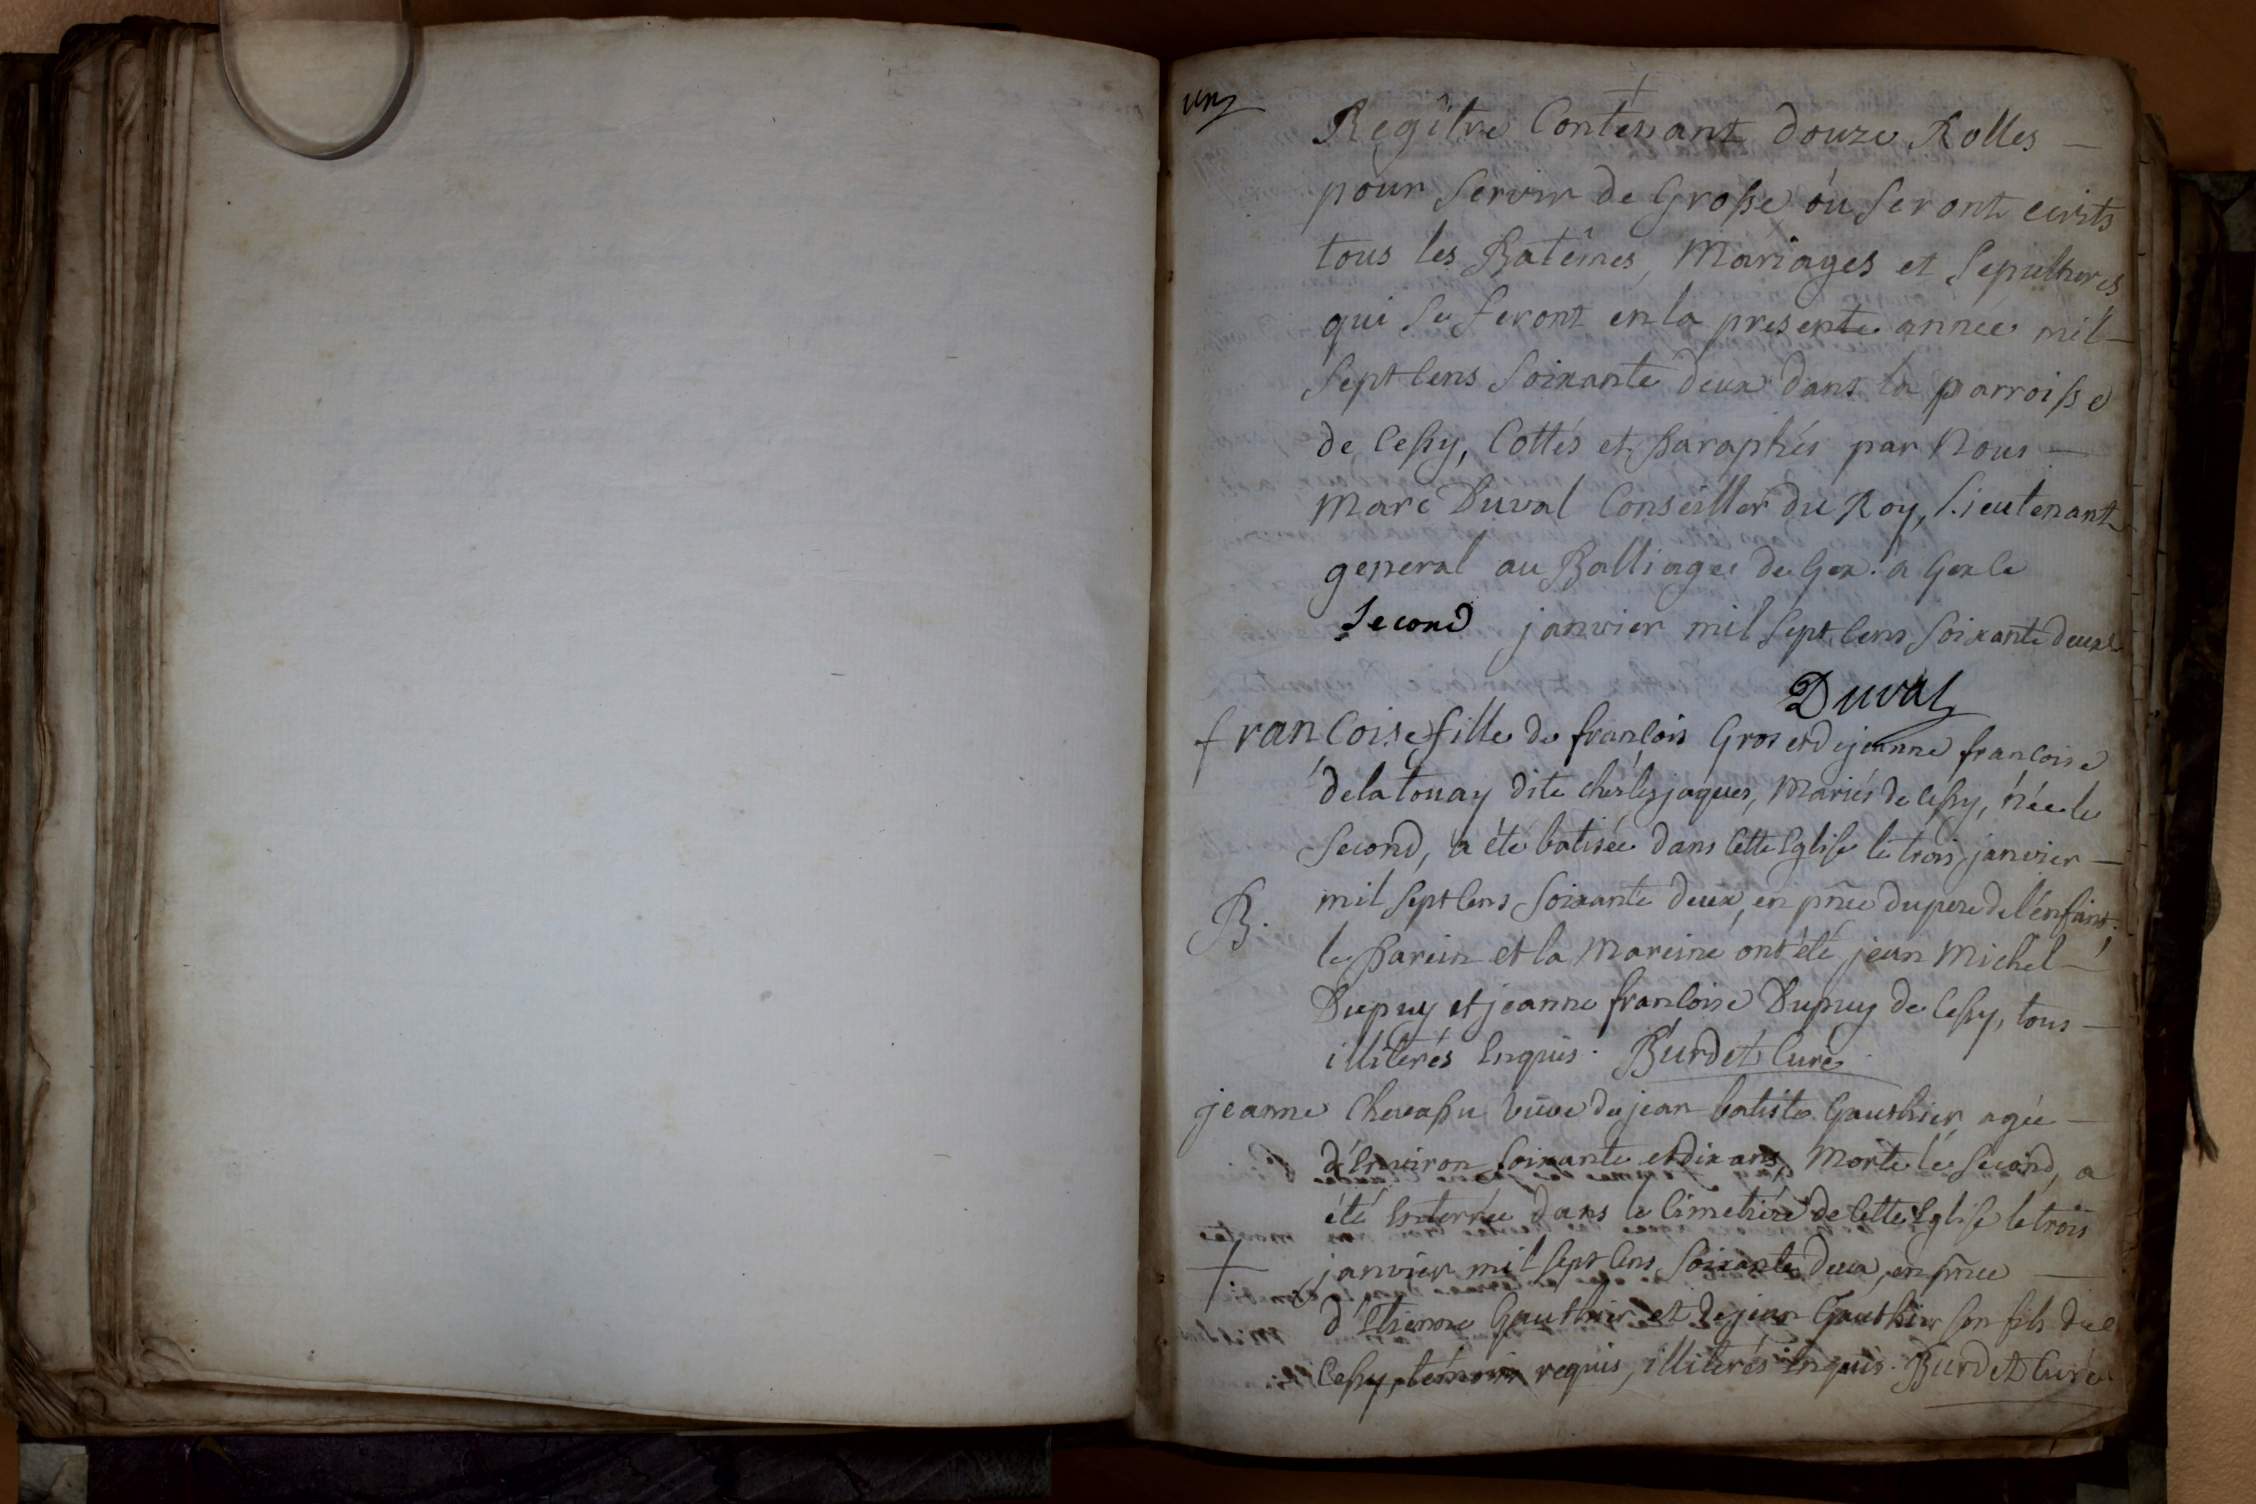 un
Regître Contenant douze Rolles —
pour servir de Grosse où seront ecrits
tous les Batêmes, Mariages et Sepultures
qui se feront en la presente année mil —
Sept Cens Soixante deux dans la parroisse
de Cessy, Cottés et paraphés par Nous —
Marc Duval Conseiller du Roy, Lieutenant
general au Balliage de Gex. a Gex le
Second janvier mil Sept Cens Soixante deux
Duval
francoise fille de francois Gros et de jeanne francoise
delatouay dite chés les jaques, Mariés de Cessy, née le
Second, a été batisée dans Cette Eglise le trois janvier —
B. mil Sept Cens Soixante deux, en pnce du pere de l'énfant;
le parein et la Mareine ont été jean Michel —
Dupuy et jeanne francoise Dupuy de Cessy, tous —
illiterés Enquis. Burdet Curé
jeanne Chevassu veuve de jean batiste Gauthier agée —
d'Environ Soixante et dix ans, Morte le Second, a
été Enterrée dans le Cimetiere de Cette Eglise le trois
+ janvier mil Sept Cens Soixante deux, en pnce —
d'Etienne Gauthier et de jean Gauthier son fils de
Cessy, témoins requis, illiterés Enquis. Burdet Curé